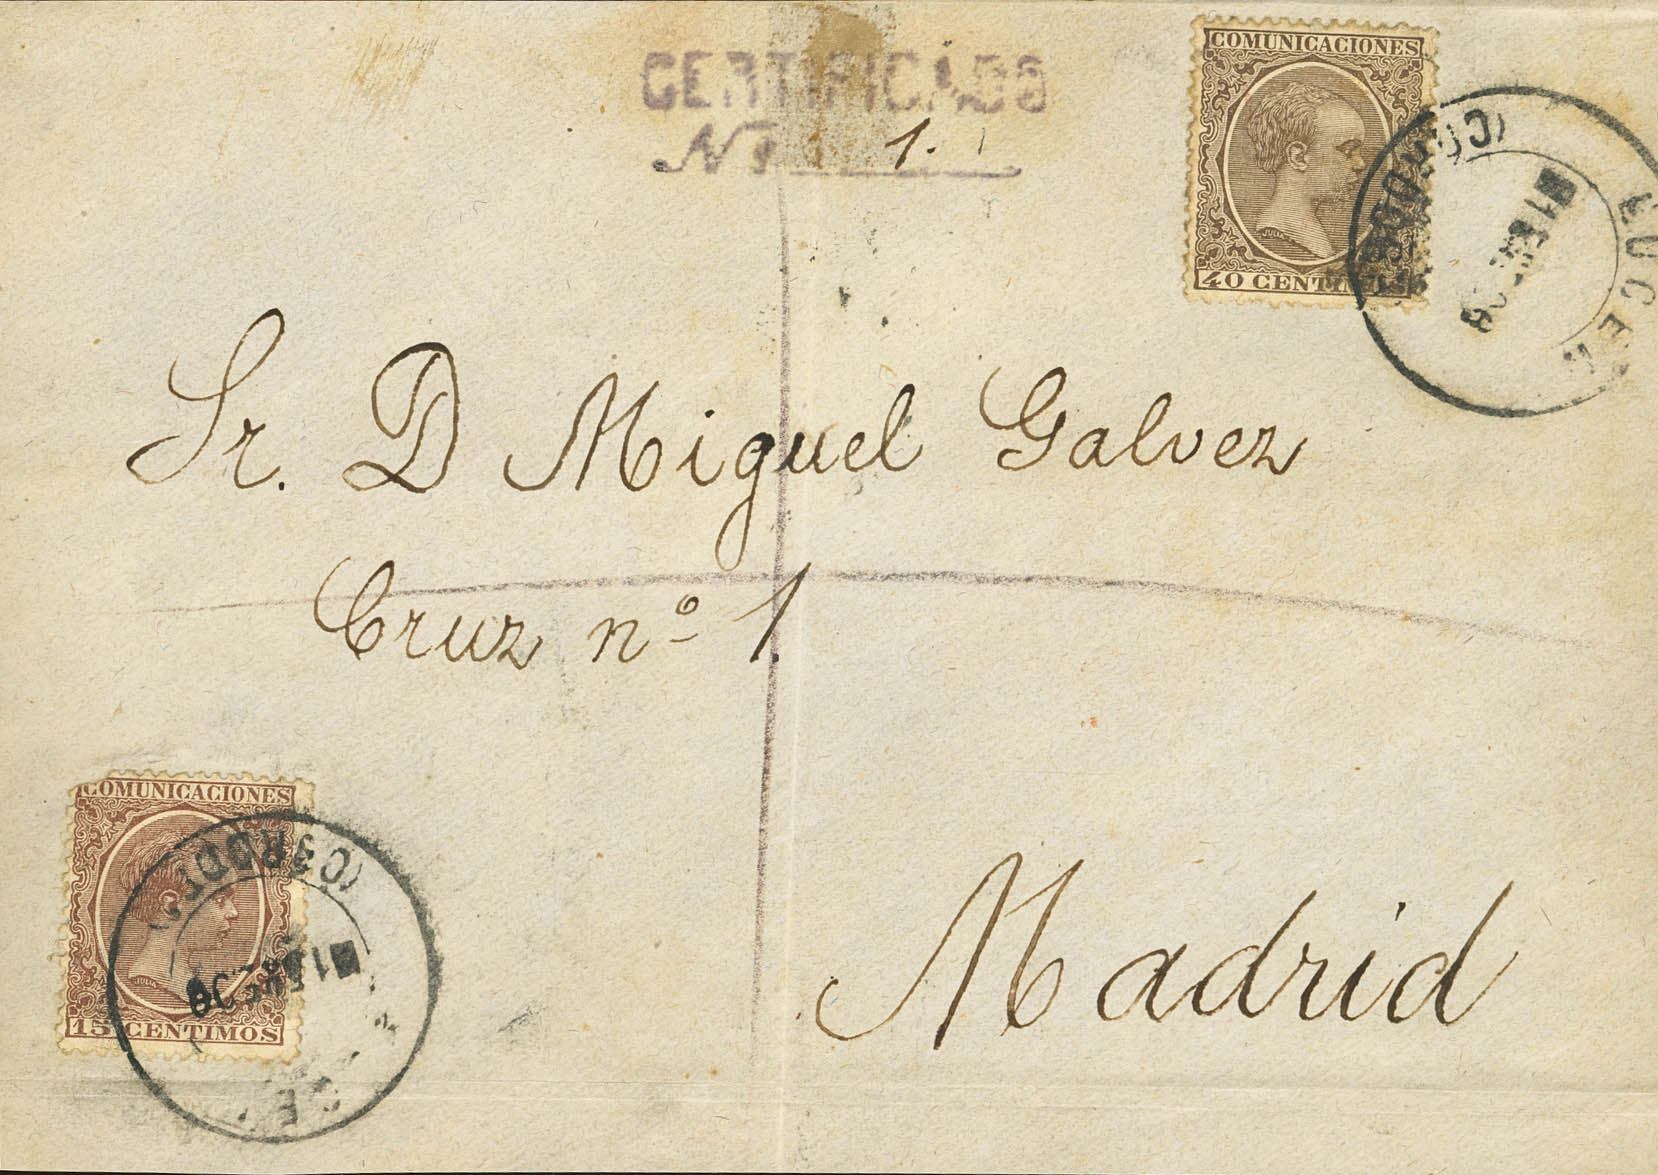 CERTIFICADO
N 1.
COMUNICACIONES
JULIA
40 CENTIMOS
Sr. D Miguel Galvez
Cruz nº 1.
Madrid
COMUNICACIONES
JULIA
15 CENTIMOS